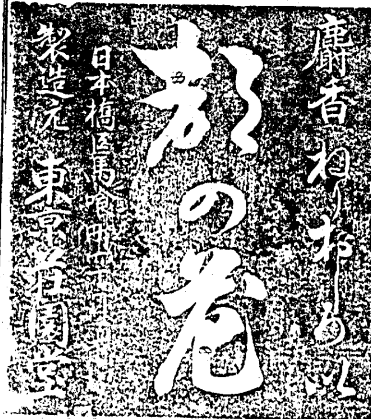 麝香ねりおしろい
都の花
日本橋区馬喰町
製造元 東京